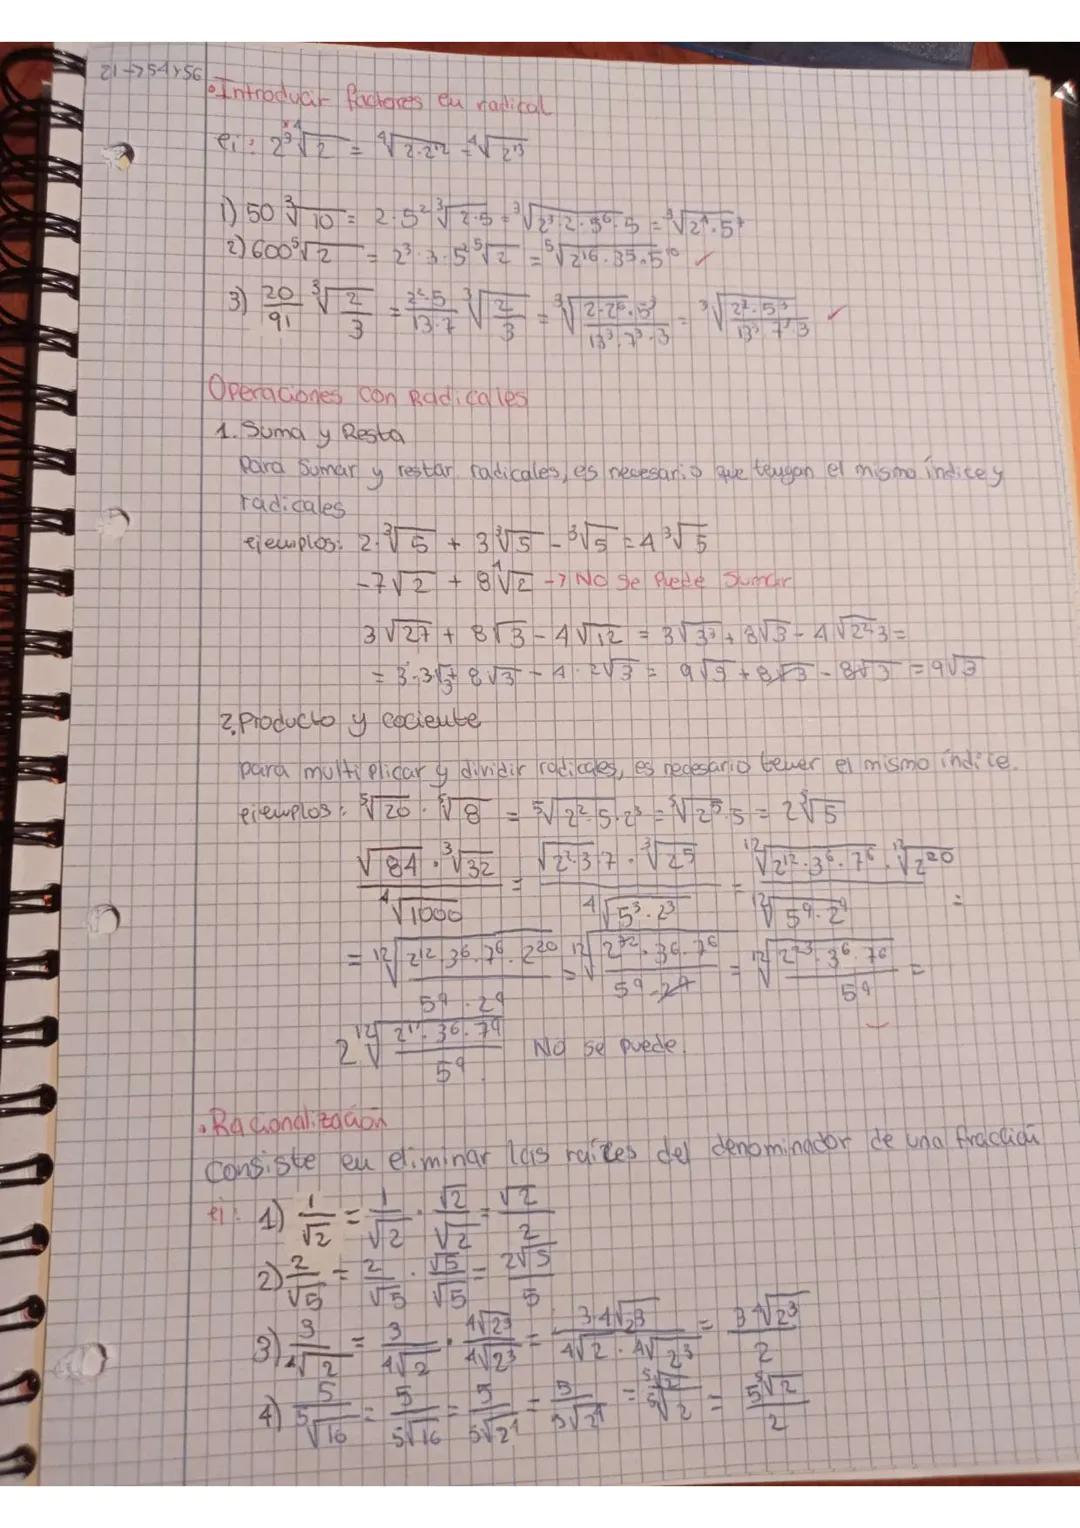 21→54y56
• Introducir factores en radical
ej: 2³ ⁴√2 = ⁴√2·2¹² = ⁴√2¹³
1) 50 ³√10 = 2·5² ³√2·5 = ³√2³·2·5⁶·5 = ³√2⁴·5⁷
2) 600 ⁵√2 = 2³·3·5² ⁵√2 = ⁵√2¹⁶·3⁵·5¹⁰ ✓
3) 20/91 ³√2/3 = 2²·5/13·7 ³√2/3 = ³√2·2⁶·5³/13³·7³·3 = ³√2⁷·5³/13³·7³·3 ✓
Operaciones con Radicales
1. Suma y Resta
para sumar y restar radicales, es necesario que tengan el mismo índice y
radicales
ejemplos: 2·³√5 + 3³√5 - ³√5 = 4³√5
-7√2 + 8⁴√2 → No se Puede Sumar
3√27 + 8√3 - 4√12 = 3√3³ + 8√3 - 4√2²·3 =
= 3·3√3 + 8√3 - 4·2√3 = 9√3 + 8√3 - 8√3 = 9√3
2. Producto y cociente
para multiplicar y dividir radicales, es necesario tener el mismo índice.
ejemplos: ⁵√20 · ⁵√8 = ⁵√2²·5·2³ = ⁵√2⁵·5 = 2⁵√5
√84 · ³√32 / ⁴√1000 = √2²·3·7 · ³√2⁵ / ⁴√5³·2³ = ¹²√2¹²·3⁶·7⁶ · ¹²√2²⁰ / ¹²√5⁹·2⁹ =
= ¹²√2¹²·3⁶·7⁶·2²⁰/5⁹·2⁹ = ¹²√2³²·3⁶·7⁶/5⁹·2⁹ = ¹²√2²³·3⁶·7⁶/5⁹ =
2 ¹²√2¹¹·3⁶·7⁶/5⁹ No se puede.
• Racionalización
consiste en eliminar las raíces del denominador de una fracción
ej: 1) 1/√2 = 1/√2 · √2/√2 = √2/2
2) 2/√5 = 2/√5 · √5/√5 = 2√5/5
3) 3/⁴√2 = 3/⁴√2 · ⁴√2³/⁴√2³ = 3·⁴√2³/⁴√2·⁴√2³ = 3⁴√2³/2
4) 5/⁵√16 = 5/⁵√16 = 5/⁵√2⁴ = 5/⁵√2⁴ = ⁵√2/⁵√2 = 5⁵√2/2